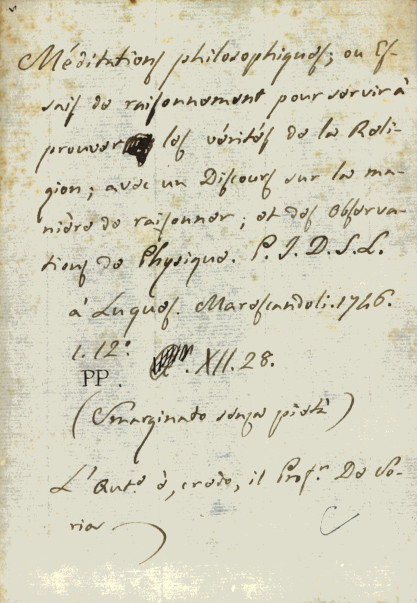 Méditations philosophiques; ou Es-
sais de raisonnement pour servir à
prouver les vérités de la Reli-
gion; avec un Discours sur la ma-
nière de raisonner; et des Observa-
tions de Physique. P. J. D. S. L.
à Luques. Marescandoli. 1746.
1. 12.º
PP. XII. 28.
(Smarginato senza pietà)
L'Aut.e è, credo, il Prof.r De So-
ria